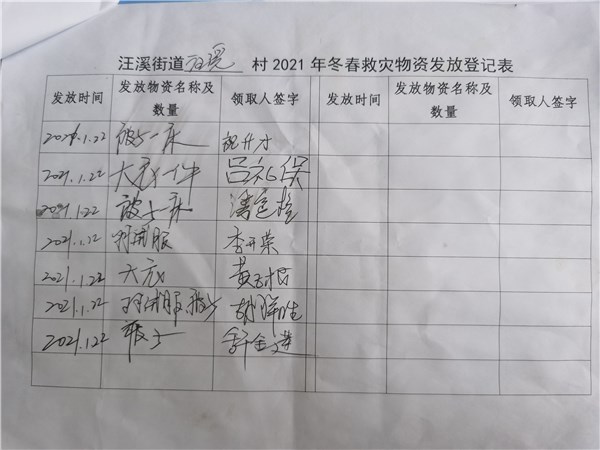 汪溪街道 村2021年冬春救灾物资发放登记表
发放时间 发放物资名称及数量 领取人签字 发放时间 发放物资名称及数量 领取人签字
2021.1.22 被子一床
2021.1.22 大衣一件 吕礼保
2021.1.22 被子一床
2021.1.22 羽绒服 李开荣
2021.1.22 大衣
2021.1.22 羽绒服 被子 胡祥胜
2021.1.22 被子 舒金进